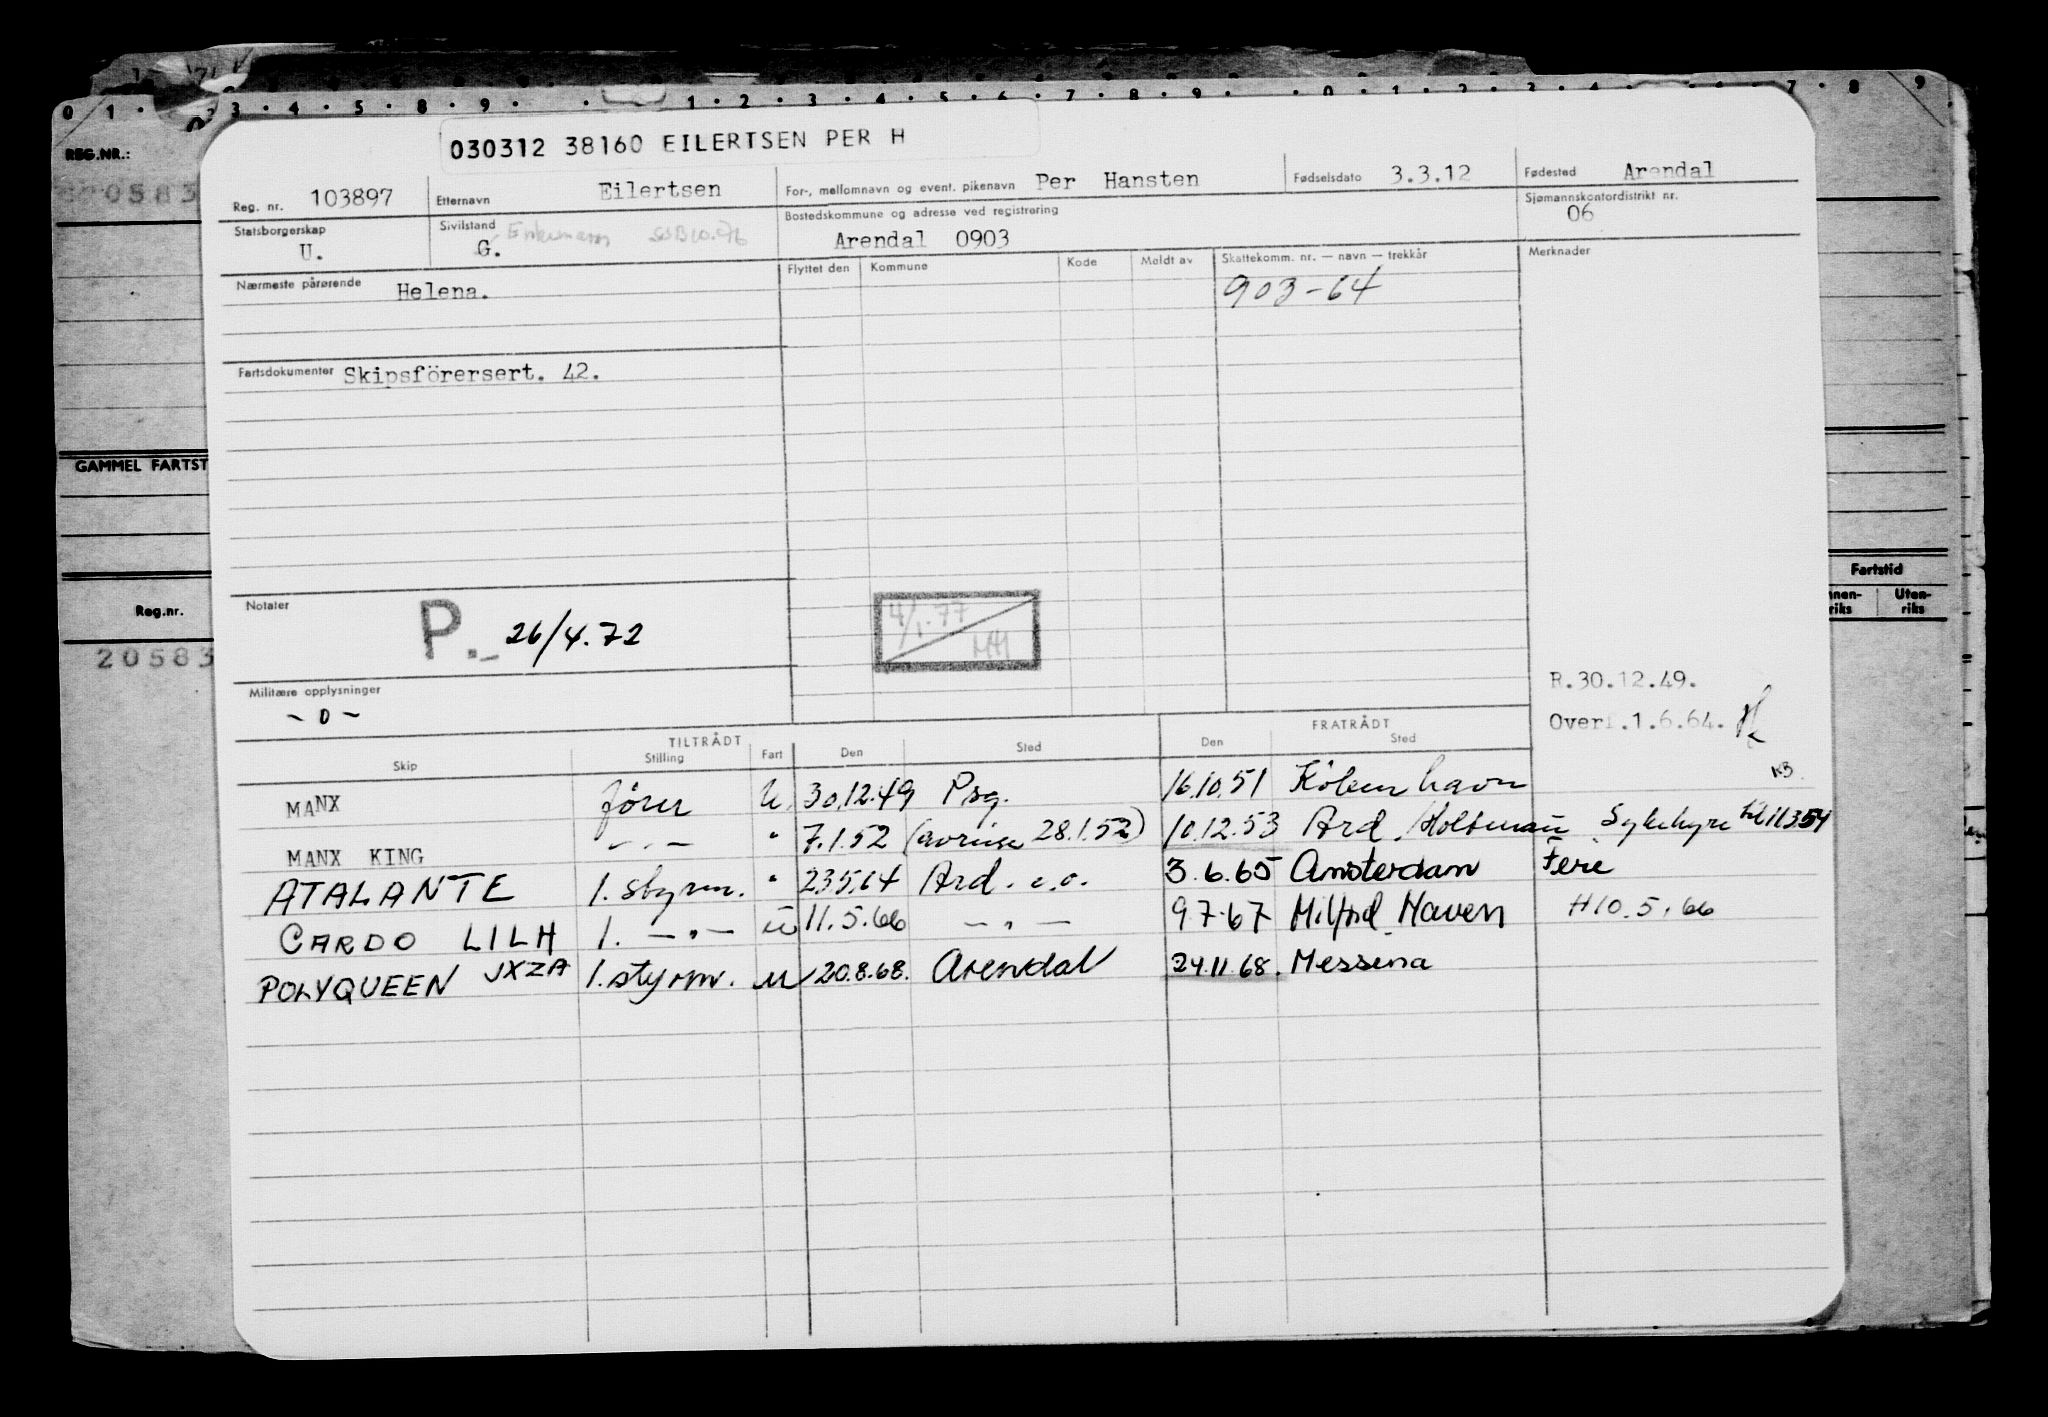 0 1 · 3 · 4 · 5 · 8 · 9 · · 1 · 2 · 3 · 4 · 5 · 6 · 7 · 8 · 9 · · 0 · 1 · 2 · 3 · 4 · 7 · 8 9
REG.NR.:
20583
030312 38160 EILERTSEN PER H
Reg. nr. 103897 Etternavn Eilertsen For-, mellomnavn og event. pikenavn Per Hansten Fødselsdato 3.3.12 Fødested Arendal
Statsborgerskap U. Sivilstand G. Enkemann Bostedskommune og adresse ved registrering Arendal 0903 Sjømannskontordistrikt nr. 06
Nærmeste pårørende Helena. Flyttet den Kommune Kode Meldt av Skattekomm. nr. — navn — trekkår Merknader
903-64
Fartsdokumenter Skipsförersert. 42.
GAMMEL FARTST
Fartstid
Reg.nr. nnen-riks Uten-riks
20583
Notater P.- 26/4.72 4/1.77
Militære opplysninger - 0 -
R.30.12.49.
Overf.1.6.64.
TILTRÅDT FRATRÅDT
Skip Stilling Fart Den Sted Den Sted
MANX förer U. 30.12.49 Psg. 16.10.51 Köbenhavn
MANX KING - " - " 7.1.52 (avreise 28.1.52) 10.12.53 Ard. Holtmann Sykehyre til 11354 KB.
ATALANTE 1. styrm. " 23.5.64 Ard. e.o. 3.6.65 Amsterdam Ferie
CARDO LILH 1. - " - u 11.5.66 - " - 9.7.67 Milford Haven H 10.5.66
POLYQUEEN JXZA 1. styrm. u 20.8.68. Arendal 24.11.68. Messina